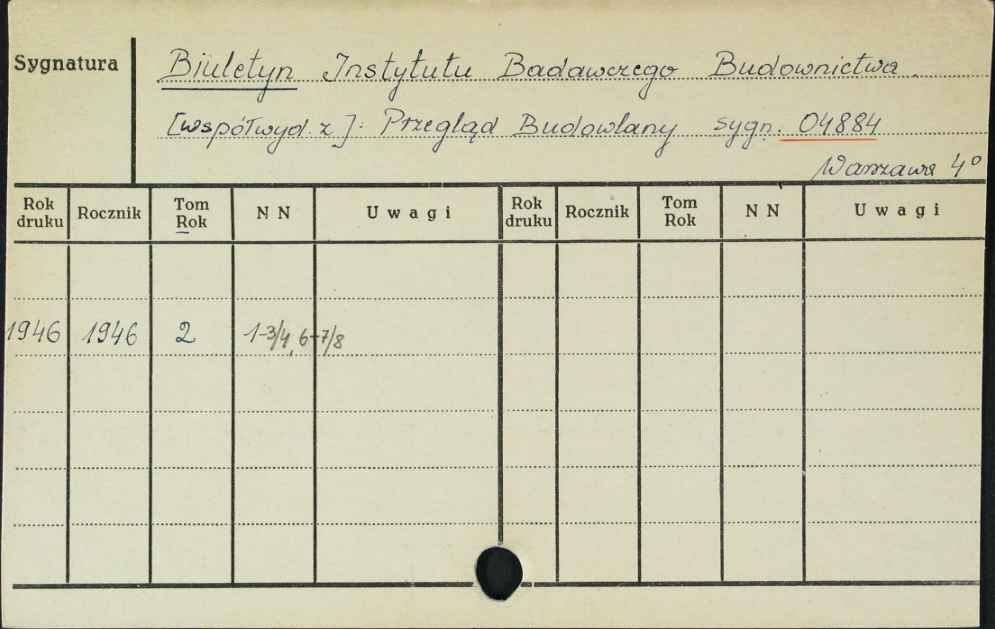 Sygnatura
Biuletyn Instytutu Badawczego Budownictwa
[współwyd. z]: Przegląd Budowlany sygn. 04884
Warszawa 4°
Rok druku Rocznik Tom Rok NN Uwagi Rok druku Rocznik Tom Rok NN Uwagi
1946 1946 2 1-3/4, 6-7/8